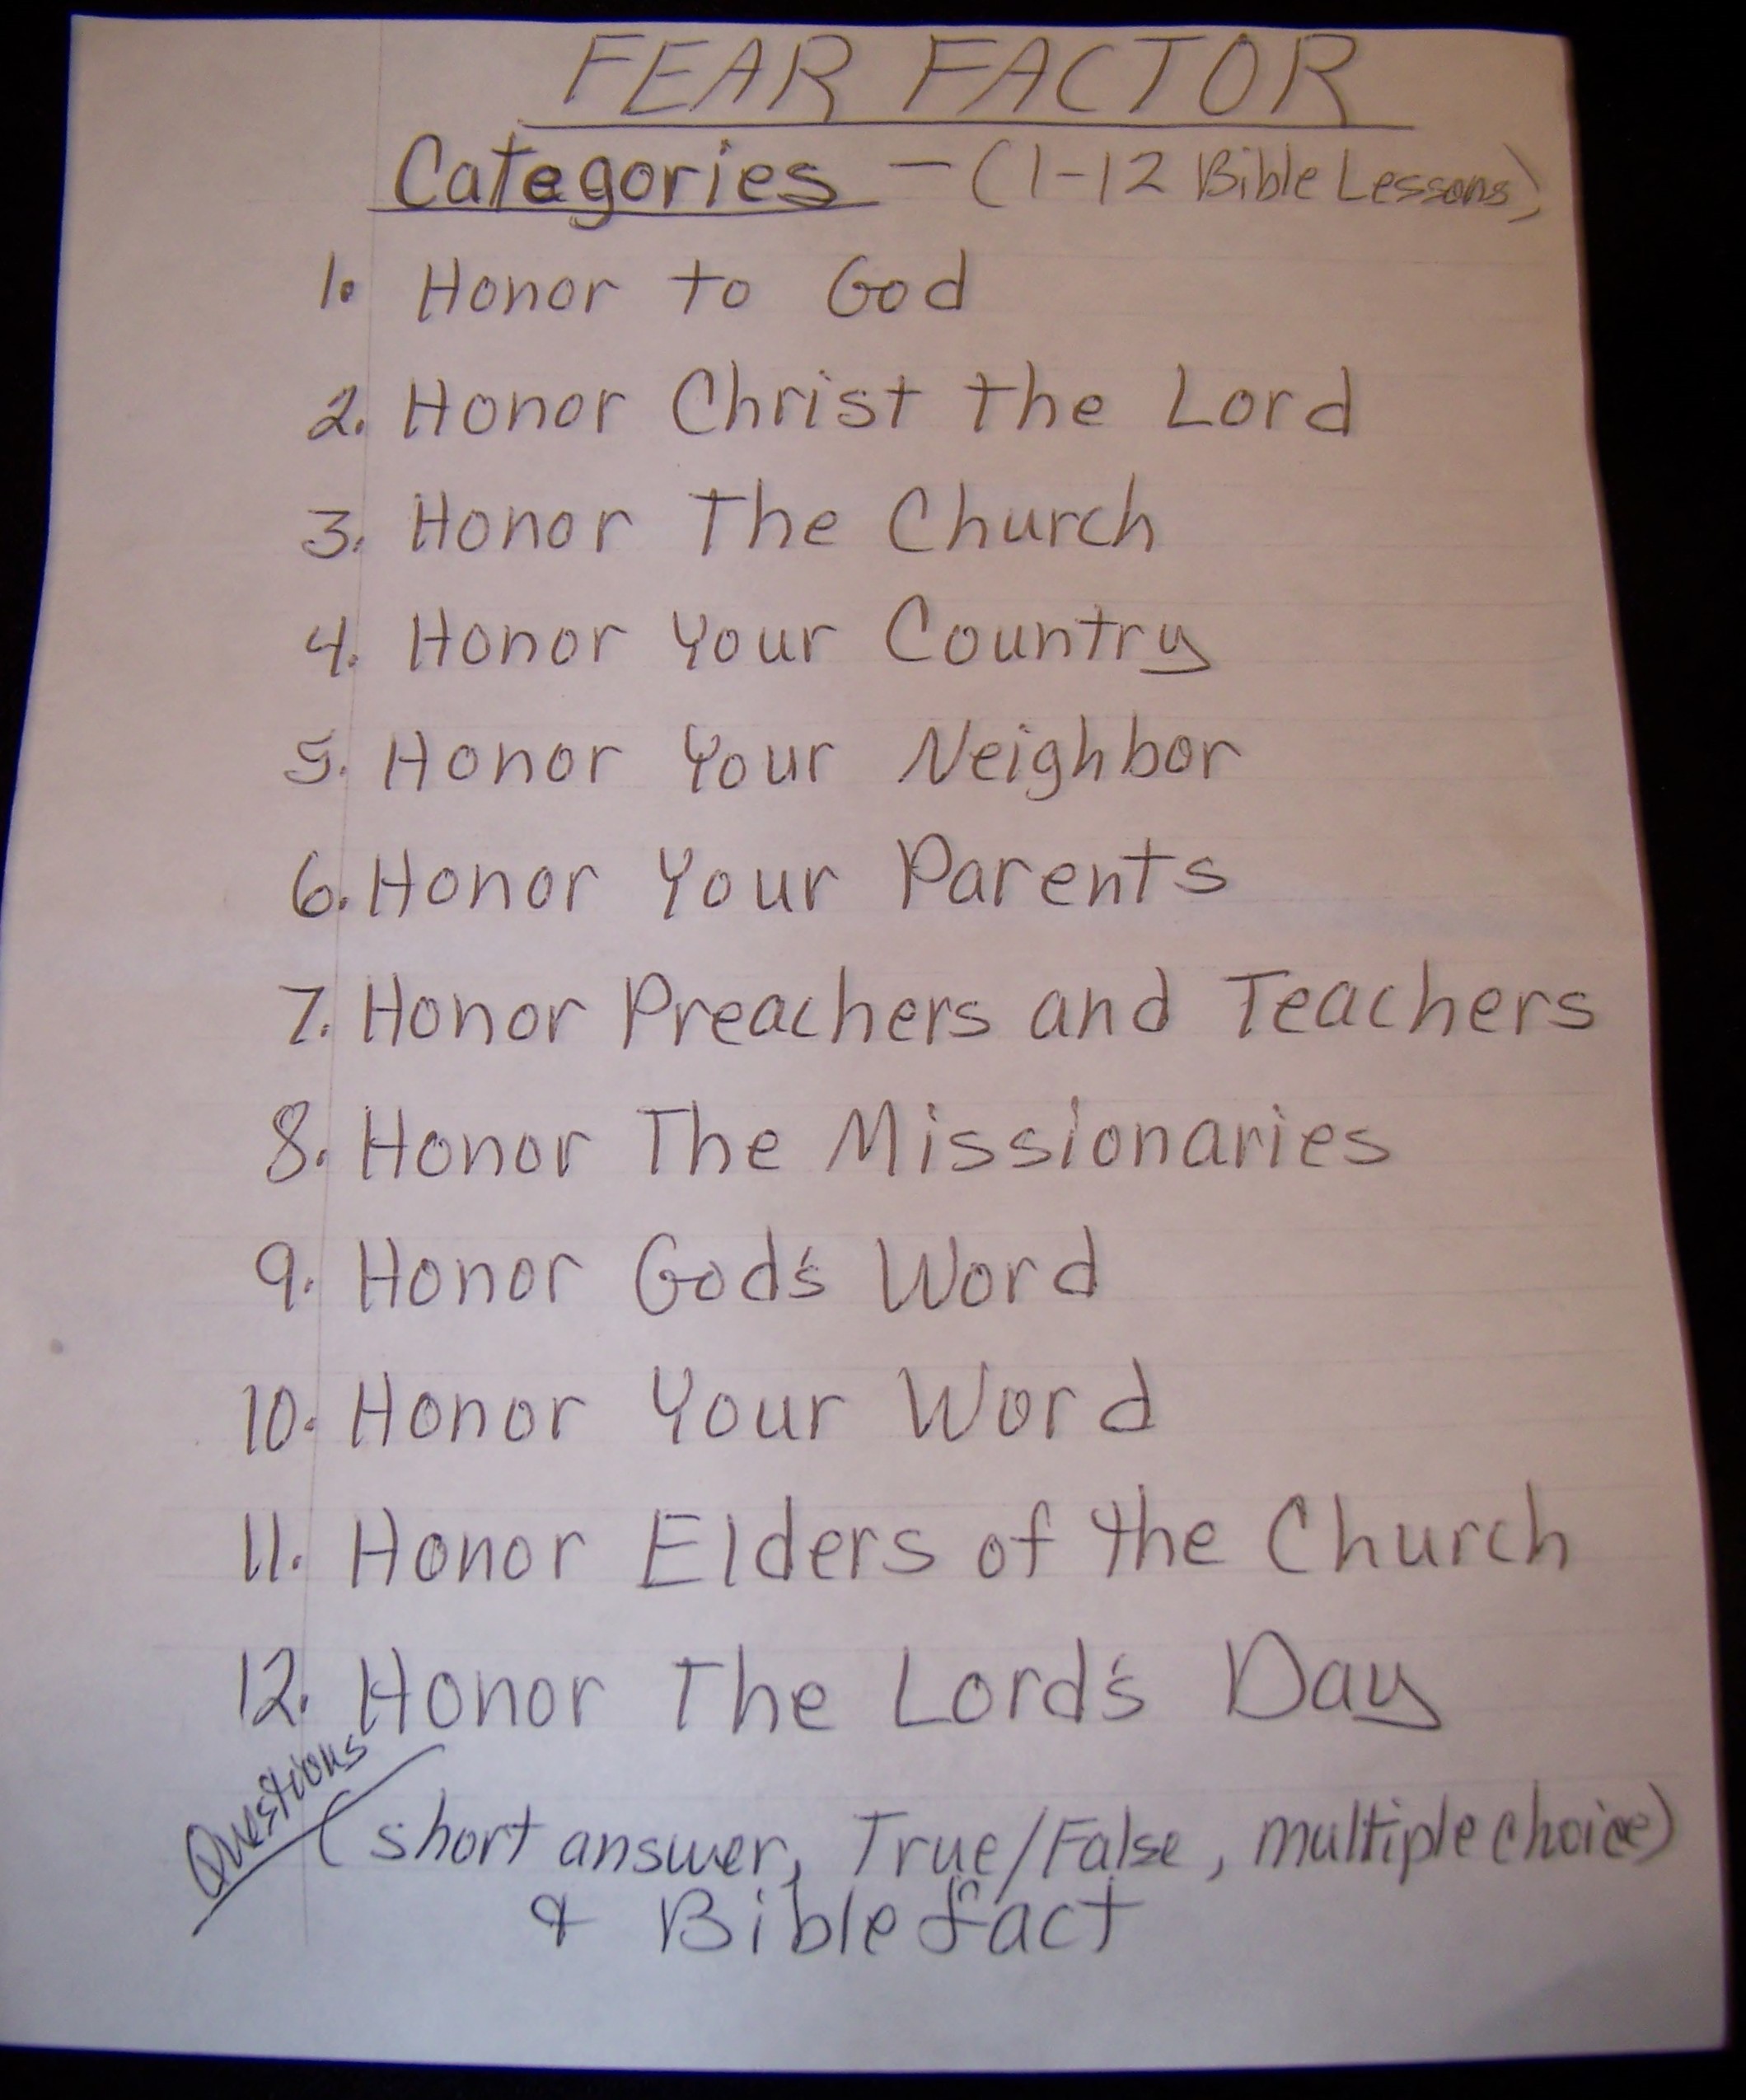 FEAR FACTOR
Categories - (1-12 Bible Lessons)
1. Honor to God
2. Honor Christ the Lord
3. Honor The Church
4. Honor Your Country
5. Honor Your Neighbor
6. Honor Your Parents
7. Honor Preachers and Teachers
8. Honor The Missionaries
9. Honor God's Word
10. Honor Your Word
11. Honor Elders of the Church
12. Honor The Lord's Day
Questions
(short answer, True/False, multiple choice)
& Bible fact